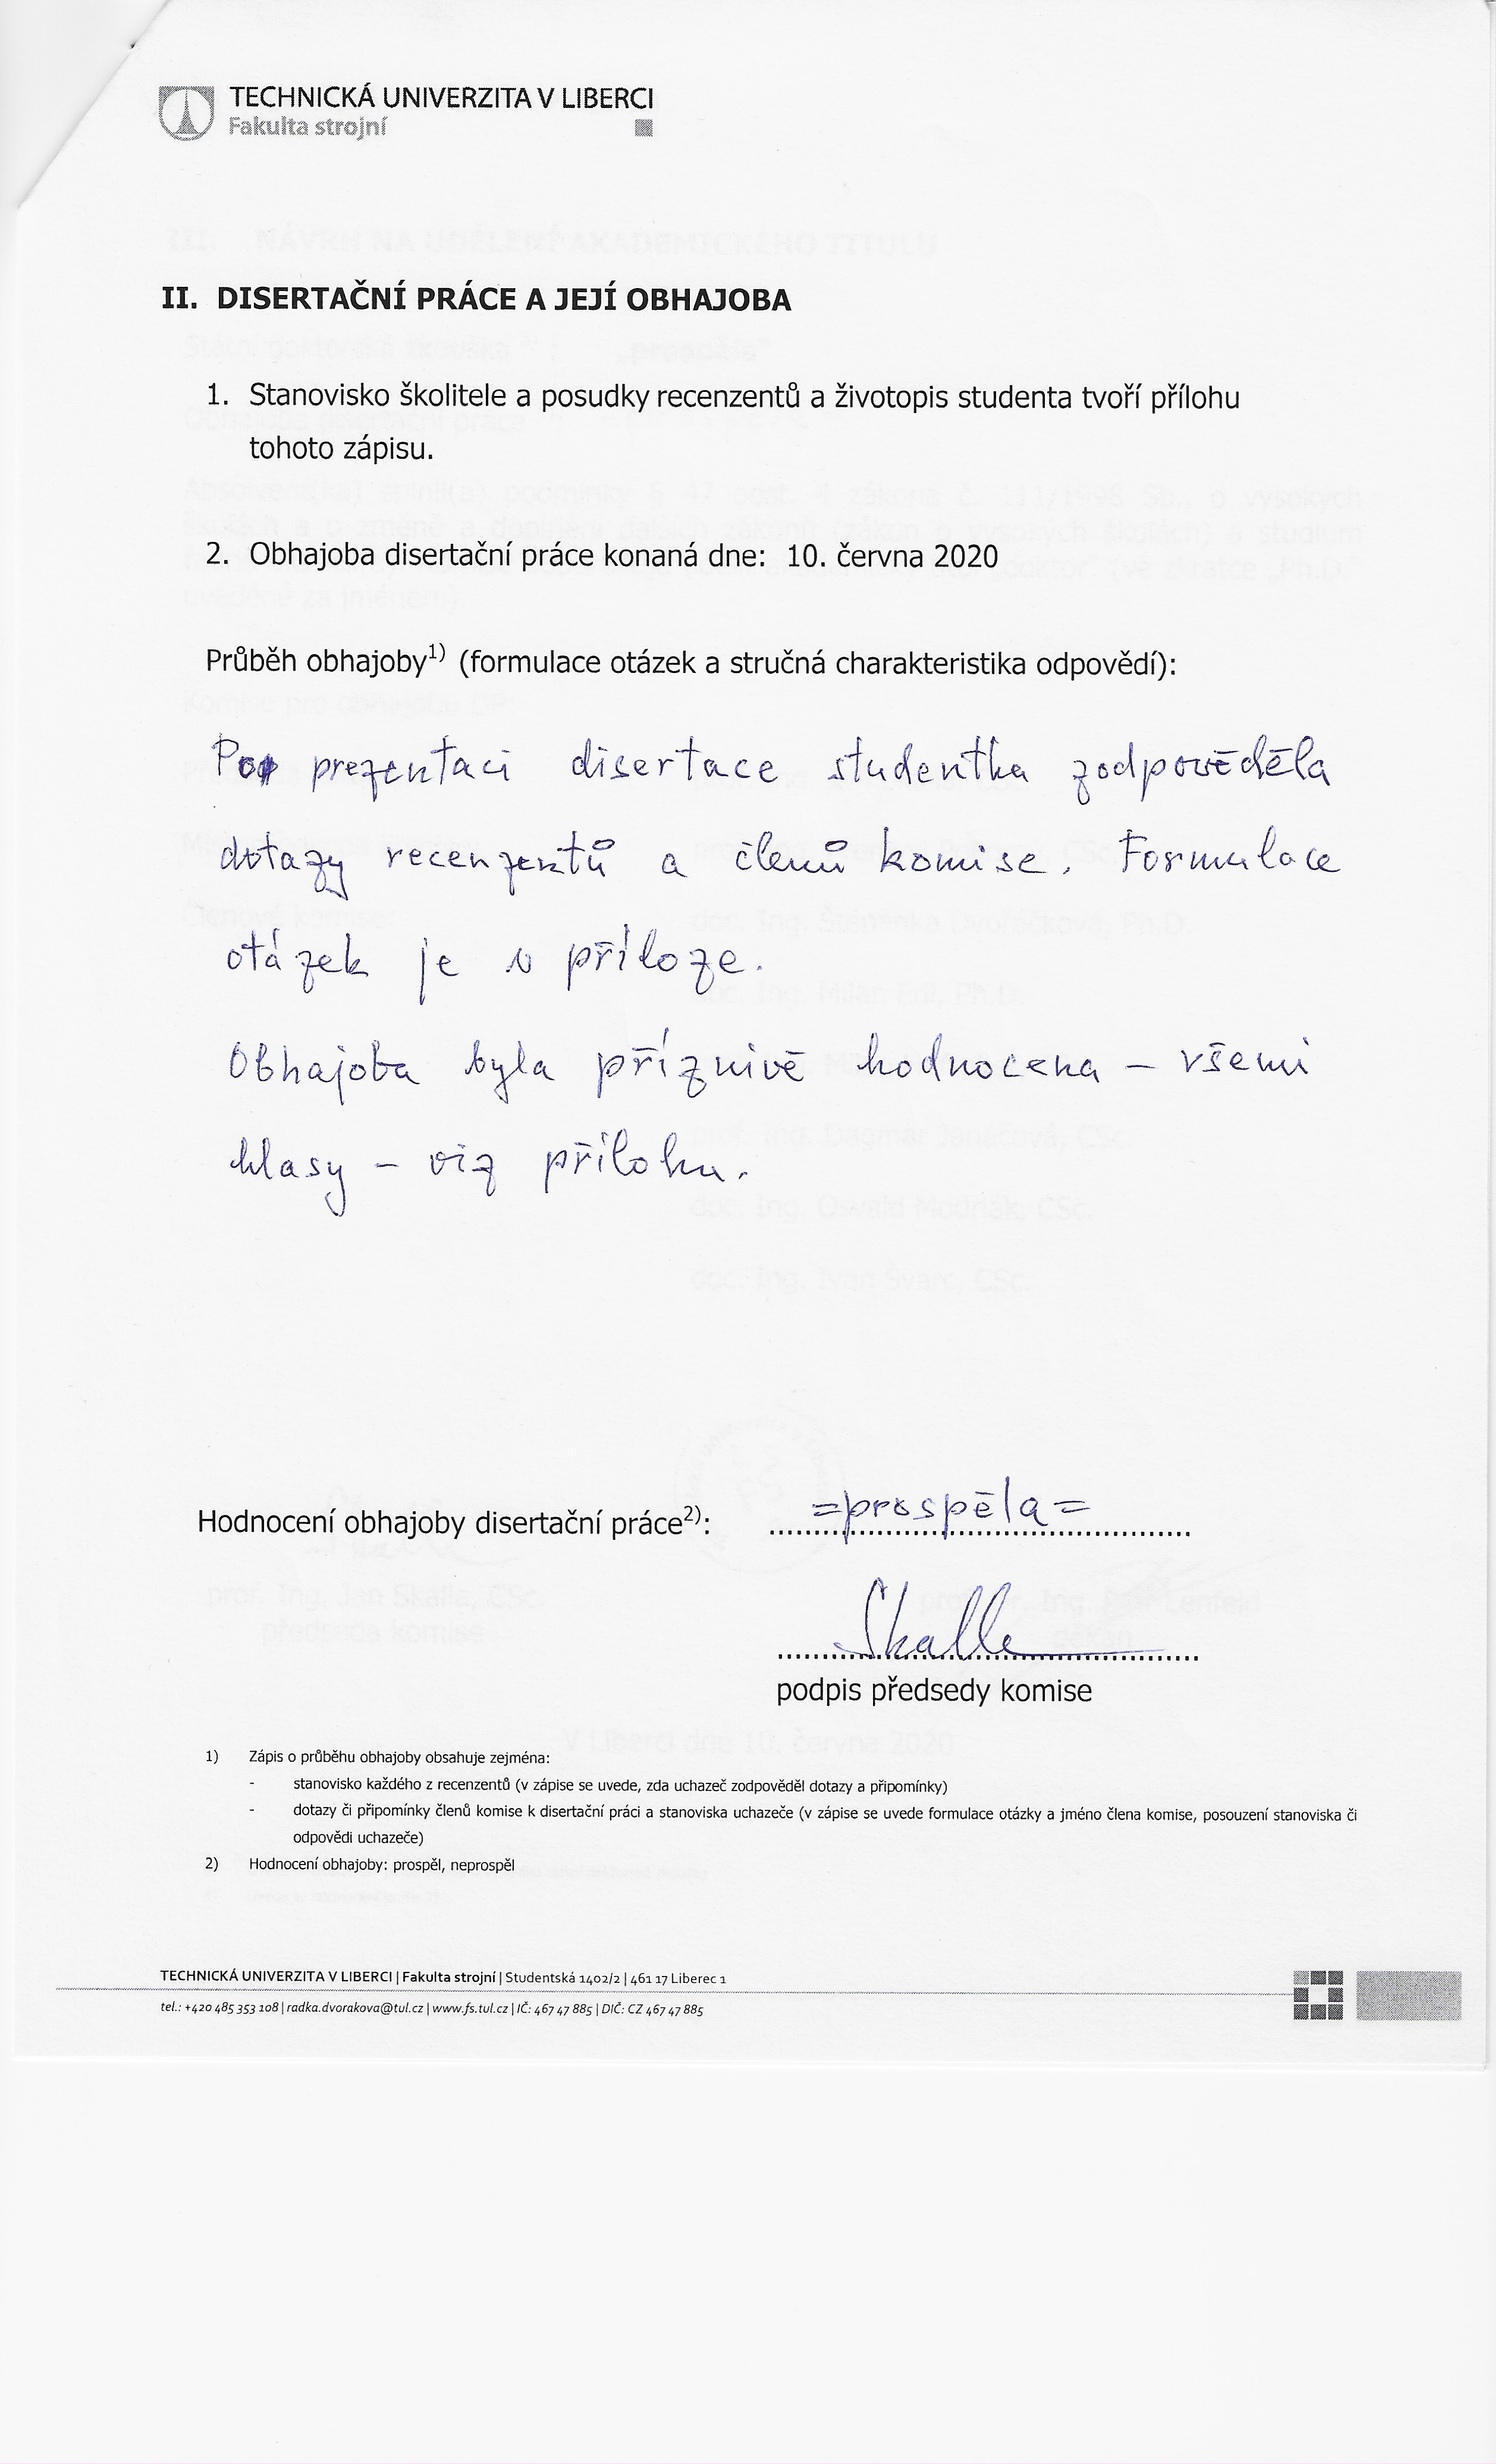 TECHNICKÁ UNIVERZITA V LIBERCI
Fakulta strojní
III. NÁVRH NA UDĚLENÍ AKADEMICKÉHO TITULU
II. DISERTAČNÍ PRÁCE A JEJÍ OBHAJOBA
1. Stanovisko školitele a posudky recenzentů a životopis studenta tvoří přílohu
tohoto zápisu.
2. Obhajoba disertační práce konaná dne: 10. června 2020
Průběh obhajoby1) (formulace otázek a stručná charakteristika odpovědí):
Po prezentaci disertace studentka zodpověděla
dotazy recenzentů a členů komise. Formulace
otázek je v příloze.
Obhajoba byla příznivě hodnocena – všemi
hlasy – viz přílohu.
Hodnocení obhajoby disertační práce2): =prospěla=
Skalla
podpis předsedy komise
V Liberci dne 10. června 2020
1) Zápis o průběhu obhajoby obsahuje zejména:
- stanovisko každého z recenzentů (v zápise se uvede, zda uchazeč zodpověděl dotazy a připomínky)
- dotazy či připomínky členů komise k disertační práci a stanoviska uchazeče (v zápise se uvede formulace otázky a jméno člena komise, posouzení stanoviska či
odpovědi uchazeče)
2) Hodnocení obhajoby: prospěl, neprospěl
TECHNICKÁ UNIVERZITA V LIBERCI | Fakulta strojní | Studentská 1402/2 | 461 17 Liberec 1
tel.: +420 485 353 108 | radka.dvorakova@tul.cz | www.fs.tul.cz | IČ: 467 47 885 | DIČ: CZ 467 47 885